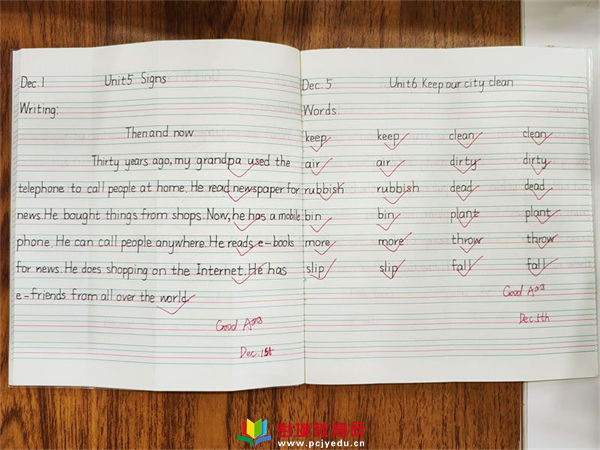 Dec.1 Unit5 Signs
Writing:
Then and now
Thirty years ago, my grandpa used the
telephone to call people at home. He read newspaper for
news. He bought things from shops. Now, he has a mobile
phone. He can call people anywhere. He reads e-books
for news. He does shopping on the Internet. He has
e-friends from all over the world.
Good
Dec.1st
Dec.5 Unit6 Keep our city clean
Words:
keep keep clean clean
air air dirty dirty
rubbish rubbish dead dead
bin bin plant plant
more more throw throw
slip slip fall fall
Good
www.pcjyedu.cn